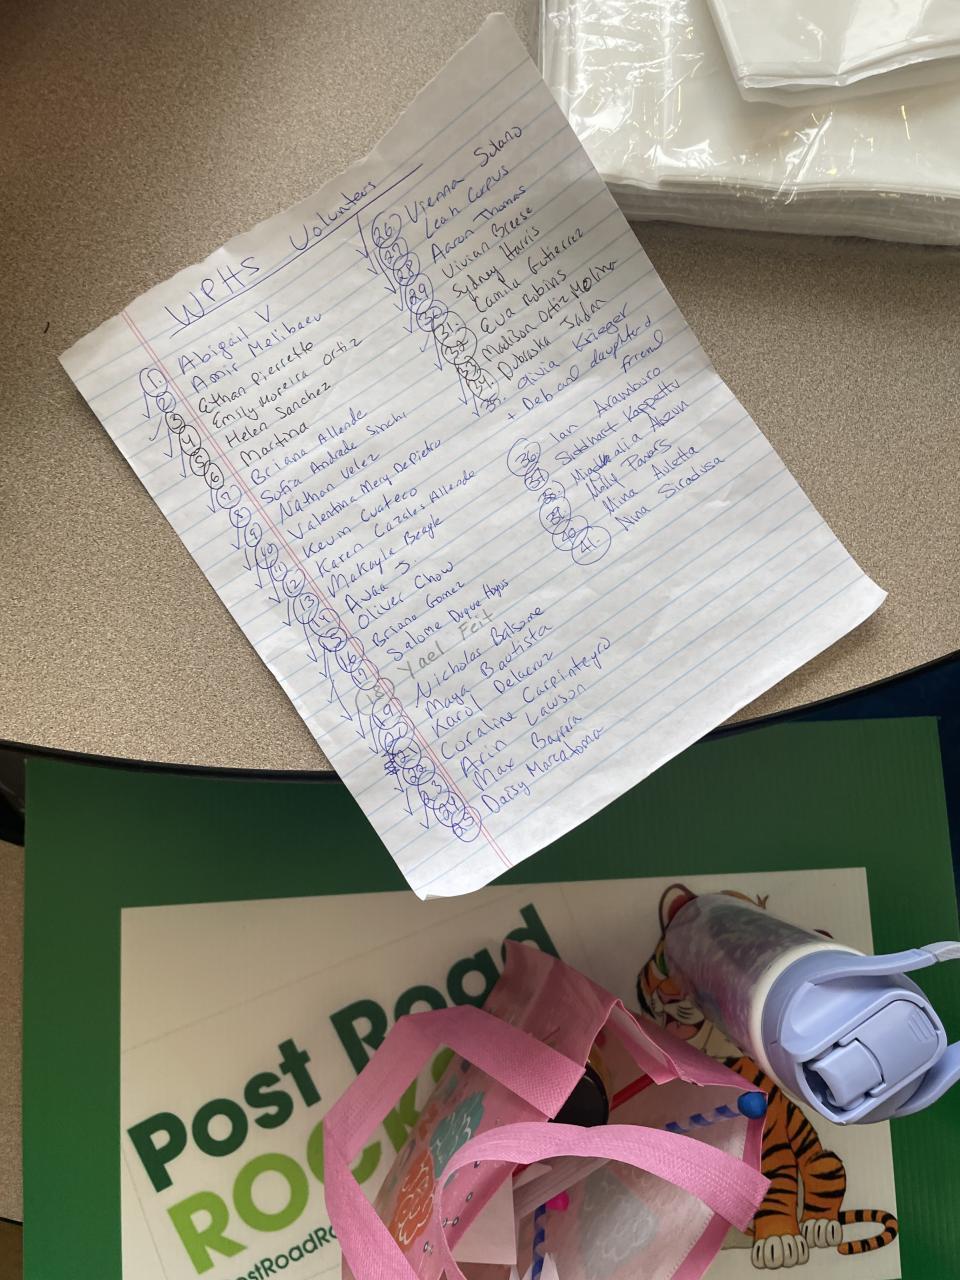 WPHS Volunters
1. Abigail V
2. Amir Melibaev
3. Ethan Pierrette
4. Emily Moreira Ortiz
5. Helen Sanchez
6. Martina
7. Briana Allende
8. Sofia Andrade Sinchi
9. Nathan Velez
10. Valentina Mery DePietro
11. Kevin Cuateco
12. Karen Cazales Allende
13. Makayla Beagle
14. Avaa J.
15. Oliver Chow
16. Briana Gomez
17. Salome Duque Hoyos
18. Yael Feit
19. Nicholas Balsome
20. Maya Bautista
21. Karol Delacruz
22. Coraline Carpinteyro
23. Arin Lawson
24. Max Barrera
25. Daisy Maraboma
26. Vienna Solano
27. Leah Corpus
28. Aaron Thomas
29. Vivian Breese
30. Sydney Harris
31. Camila Gutierrez
32. Eva Robins
33. Madison Ortiz Molina
34. Dubraska Jafan
35. Olivia Krieger
+ Deb and daughter & friend
36. Ian Aramburo
37. Siddhart Kappettu
38. Azzun
39. Molly Powers
40. Mina Auletta
41. Nina Siradusa
Post Road
ROCKS
ostRoadRo